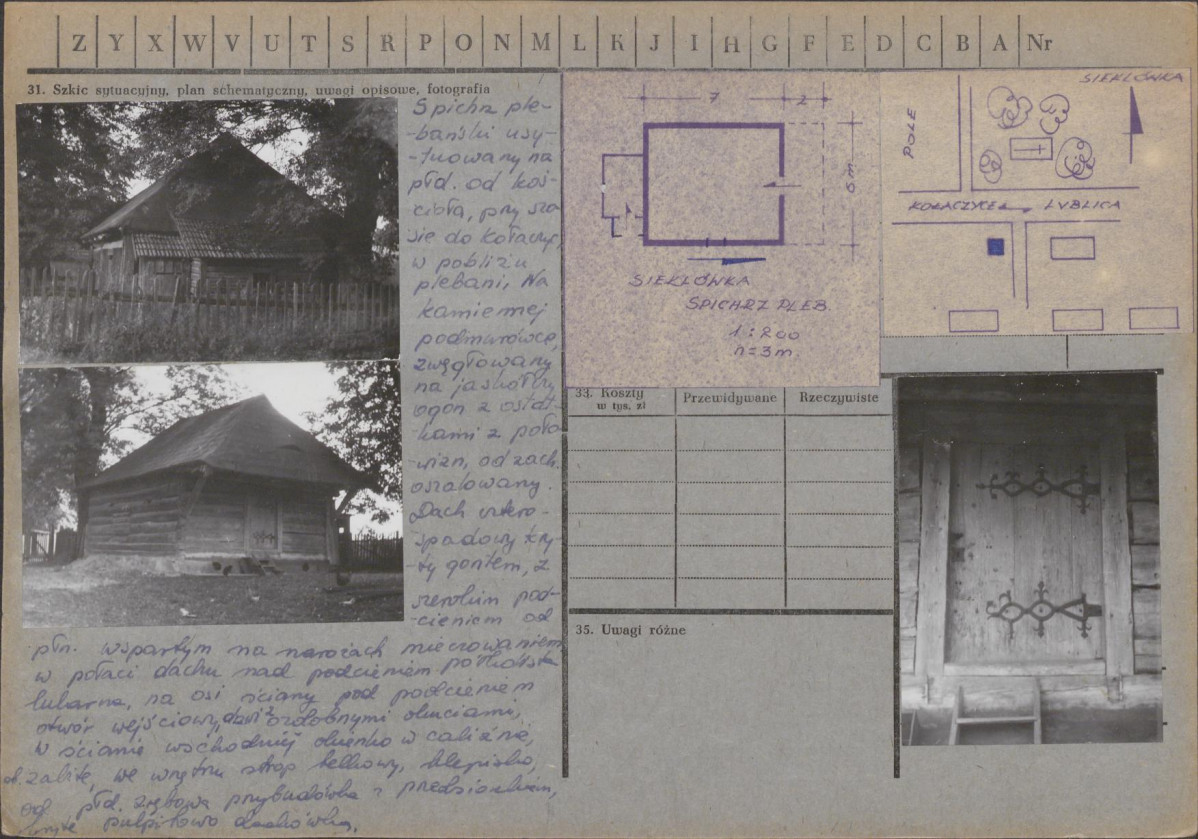 Z Y X W V U T S R P O N M L K J I H G F E D C B A Nr
31. Szkic sytuacyjny, plan schematyczny, uwagi opisowe, fotografia
Spichrz ple-
-bański usy-
-tuowany na
płd. od koś-
cioła, przy szo
sie do Kołaczyc,
w pobliżu
plebani, Na
kamiennej
podmurówce,
zwęgłowany
na jaskółczy
ogon z ostat-
kami z poło
-wizn, od zach.
oszalowany.
Dach cztero-
spadowy kry-
-ty gontem, z
szerokim pod-
-cieniem od
płn. wspartym na narożach mieczowaniem
w połaci dachu nad podcieniem półkolista
lukarna, na osi ściany pod podcieniem
otwór wejściowy, drzwi z ozdobnymi okuciami,
W ścianie wschodniej okienko w caliźnie,
ob. zabite, we wnętrzu strop belkowy, klepisko,
od płd. zrębowa przybudówka z przedsionkiem,
kryte pulpitowo dachówką.
7 2
6m
SIEKLÓWKA
SPICHRZ PLEB.
1:200
h=3m.
SIEKLÓWKA
POLE
KOŁACZYCE LUBLICA
33. Koszty
w tys. zł
Przewidywane
Rzeczywiste
35. Uwagi różne